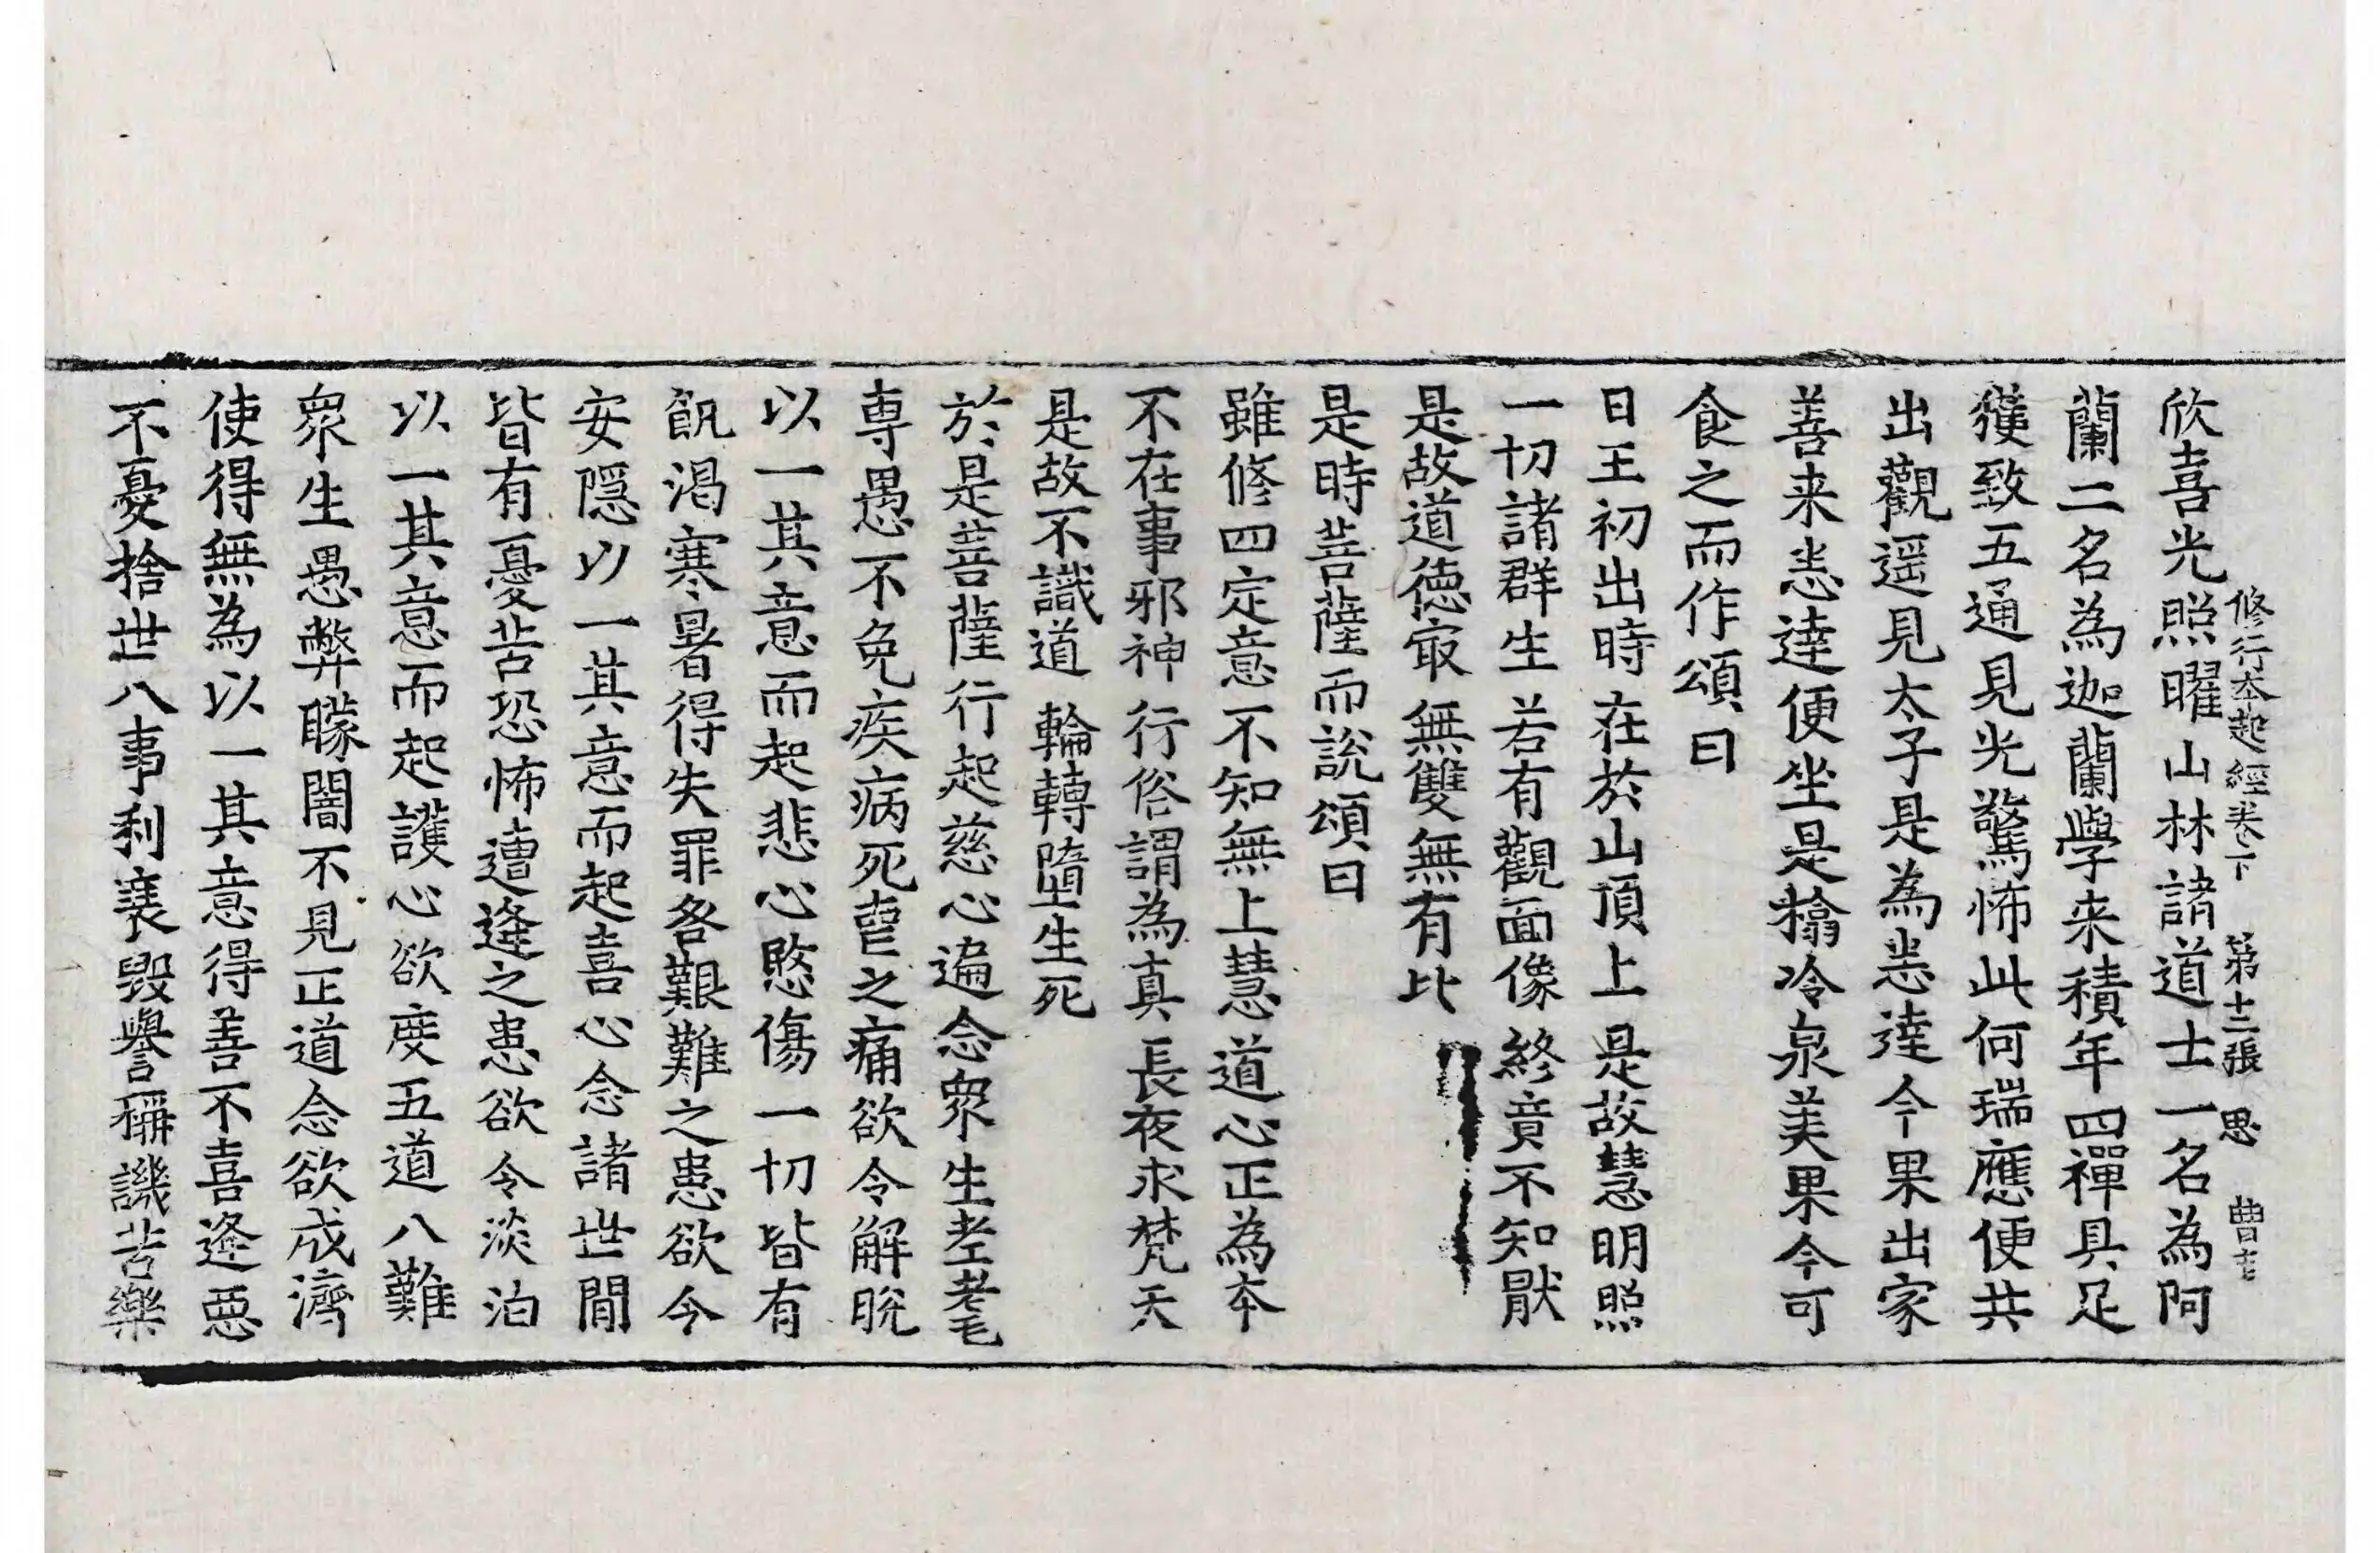 修行本起經卷下　第十三張　思　曹
欣喜光照曜山林諸道士一名為阿
蘭二名為迦蘭學来積年四禪具足
獲致五通見光驚怖此何瑞應便共
出觀遥見太子是為悉達今果出家
善来悉達便坐是牀冷泉美果今可
食之而作頌曰
日王初出時　在於山頂上　是故慧明照
一切諸群生　若有觀面像　終竟不知厭
是故道德㝡　無雙無有比
是時菩薩而說頌曰
雖修四定意　不知無上慧　道心正為本
不在事邪神　行俗謂為真　長夜求梵天
是故不識道　輪轉墮生死
於是菩薩行起慈心遍念衆生老耄
専愚不免疾病死喪之痛欲令解脫
以一其意而起悲心愍傷一切皆有
飢渴寒暑得失罪咎艱難之患欲令
安隱以一其意而起喜心念諸世間
皆有憂苦恐怖遭逢之患欲令淡泊
以一其意而起護心欲度五道八難
衆生愚弊矇闇不見正道念欲成濟
使得無為以一其意得善不喜逢惡
不憂捨世八事利衰毀譽稱譏苦樂